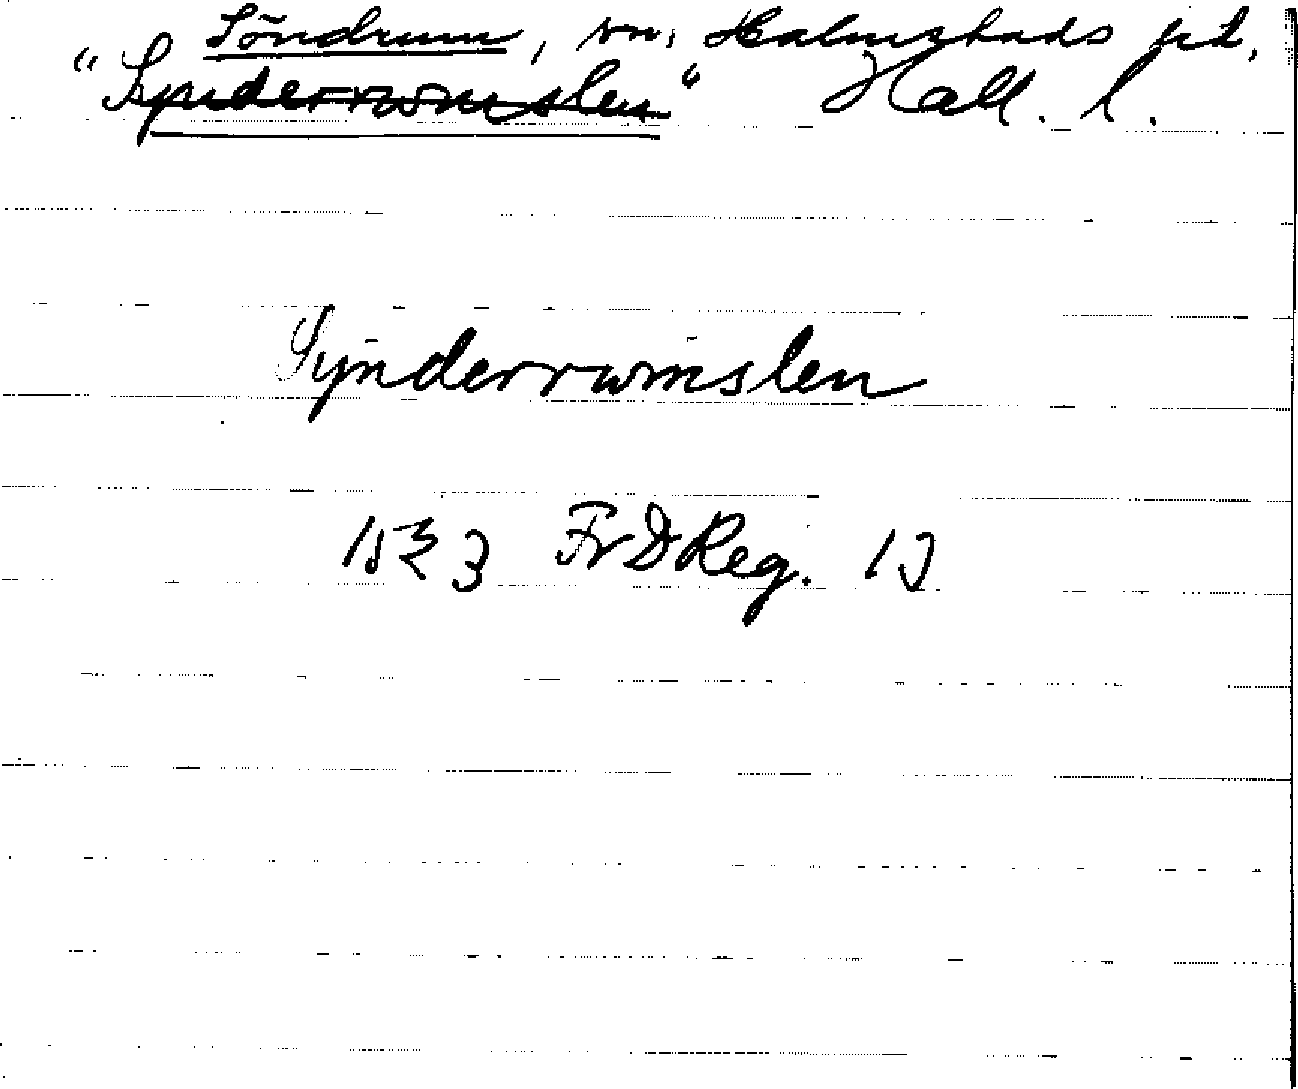 Söndrum, sn, Halmstads hd,
"Synderrwmslen" Hall. l.
Synderrwmslen
1523 FrDReg. 13